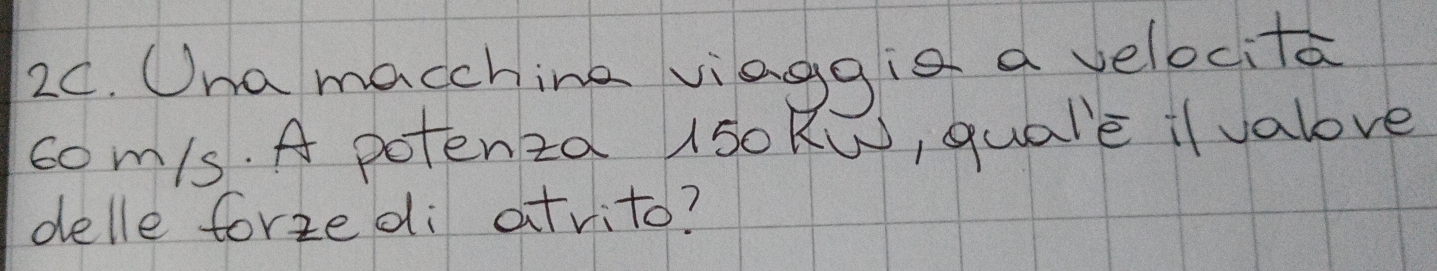 2C. Una macchina viaggia a velocità
60 m/s. A potenza 150 KW, qual'è il valore
delle forze di atrito?